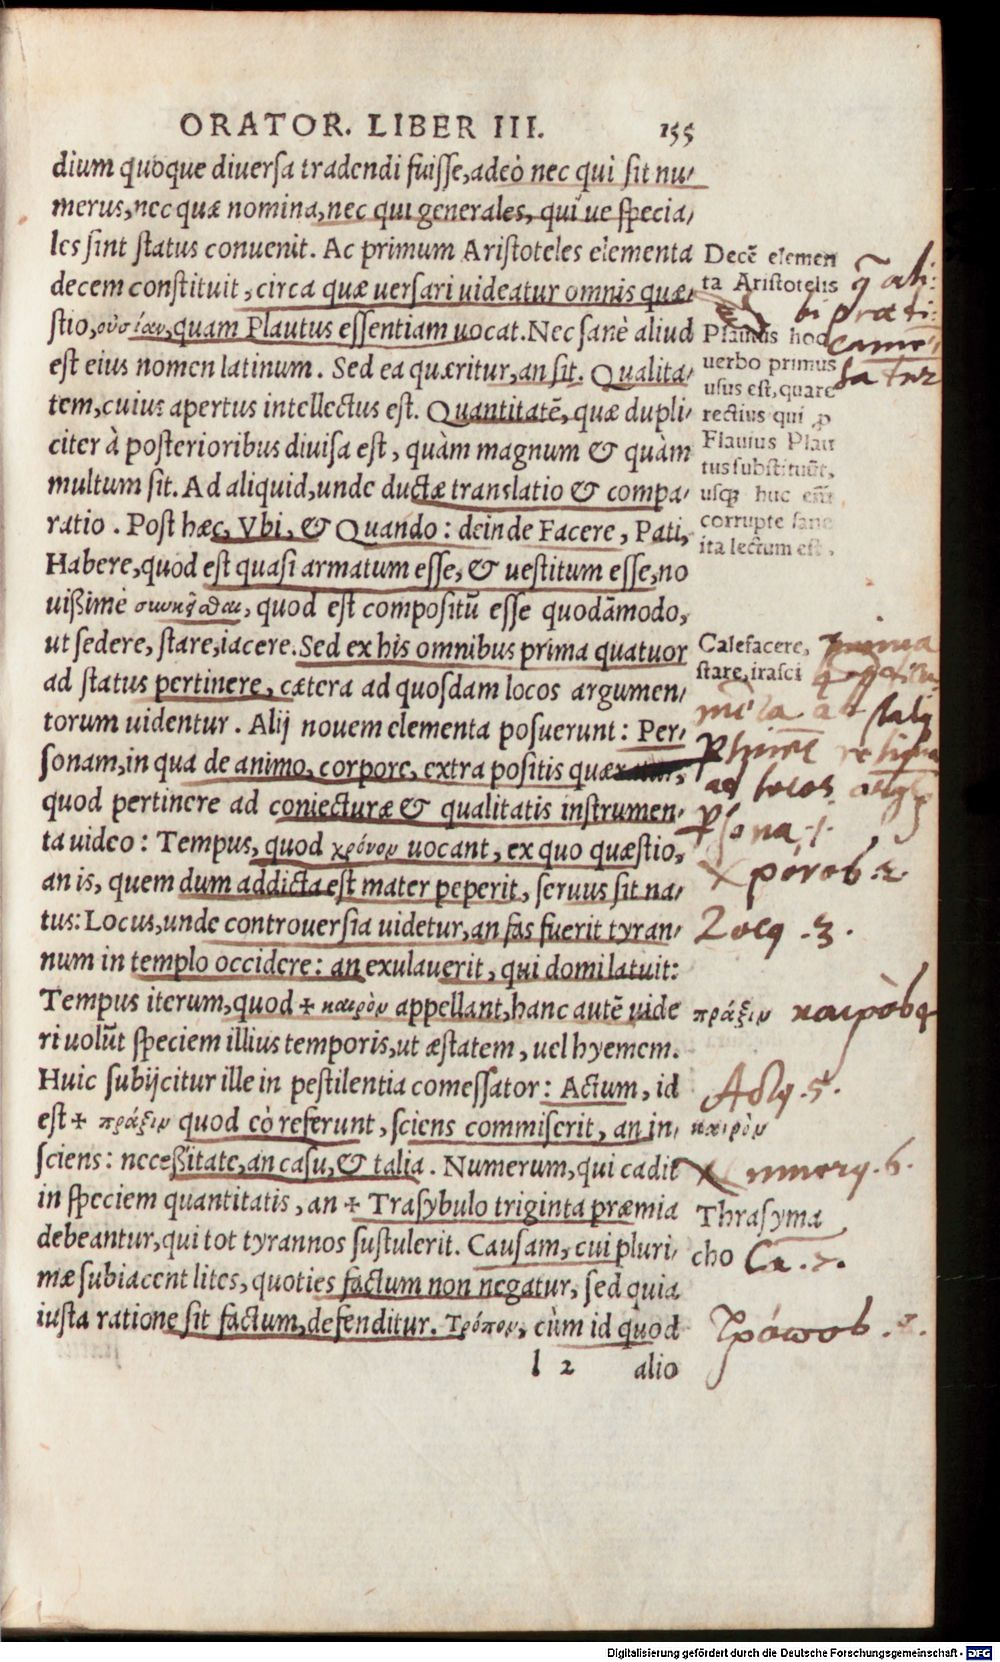 ORATOR. LIBER III. 155
dium quoque diuersa tradendi fuisse, adeò nec qui sit nu-
merus, nec quæ nomina, nec qui generales, qui ue specia-
les sint status conuenit. Ac primum Aristoteles elementa
decem constituit, circa quæ uersari uideatur omnis quæ-
stio, οὐσίαν, quam Plautus essentiam uocat. Nec sanè aliud
est eius nomen latinum. Sed ea quæritur, an sit. Qualita-
tem, cuius apertus intellectus est. Quantitatẽ, quæ dupli-
citer à posterioribus diuisa est, quàm magnum & quàm
multum sit. Ad aliquid, unde ductæ translatio & compa-
ratio. Post hæc, Vbi, & Quando: deinde Facere, Pati,
Habere, quod est quasi armatum esse, & uestitum esse, no
uißime, quod est compositũ esse quodãmodo,
ut sedere, stare, iacere. Sed ex his omnibus prima quatuor
ad status pertinere, cætera ad quosdam locos argumen-
torum uidentur. Alij nouem elementa posuerunt: Per-
sonam, in qua de animo, corpore, extra positis quæ
quod pertinere ad coniecturæ & qualitatis instrumen-
ta uideo: Tempus, quod χρόνον uocant, ex quo quæstio,
an is, quem dum addicta est mater peperit, seruus sit na-
tus: Locus, unde controuersia uidetur, an fas fuerit tyran-
num in templo occidere: an exulauerit, qui domi latuit:
Tempus iterum, quod + καιρὸν appellant, hanc autẽ uide
ri uolũt speciem illius temporis, ut æstatem, uel hyemem.
Huic subijcitur ille in pestilentia comessator: Actum, id
est + πράξιν quod eò referunt, sciens commiserit, an in-
sciens: neceßitate, an casu, & talia. Numerum, qui cadit
in speciem quantitatis, an + Trasybulo triginta præmia
debeantur, qui tot tyrannos sustulerit. Causam, cui pluri-
mæ subiacent lites, quoties factum non negatur, sed quia
iusta ratione sit factum, defenditur. Τρόπον, cùm id quod
l 2 alio
Decẽ elemen
ta Aristotelis
Plautus hoc
uerbo primus
usus est, quare
rectius qui ,p
Flauius Plau
tus substituũt,
usqʒ huc enĩ
corrupte sane
ita lectum est.
Calefacere,
stare, irasci
prima
ad locos
χρόνος .2.
Locꝰ .3.
πράξιν
καιρὸς 4
.5.
καιρὸν
Numerꝰ .6.
Thrasyma
cho Ca .7.
Τρόπος .8.
Digitalisierung gefördert durch die Deutsche Forschungsgemeinschaft - DFG